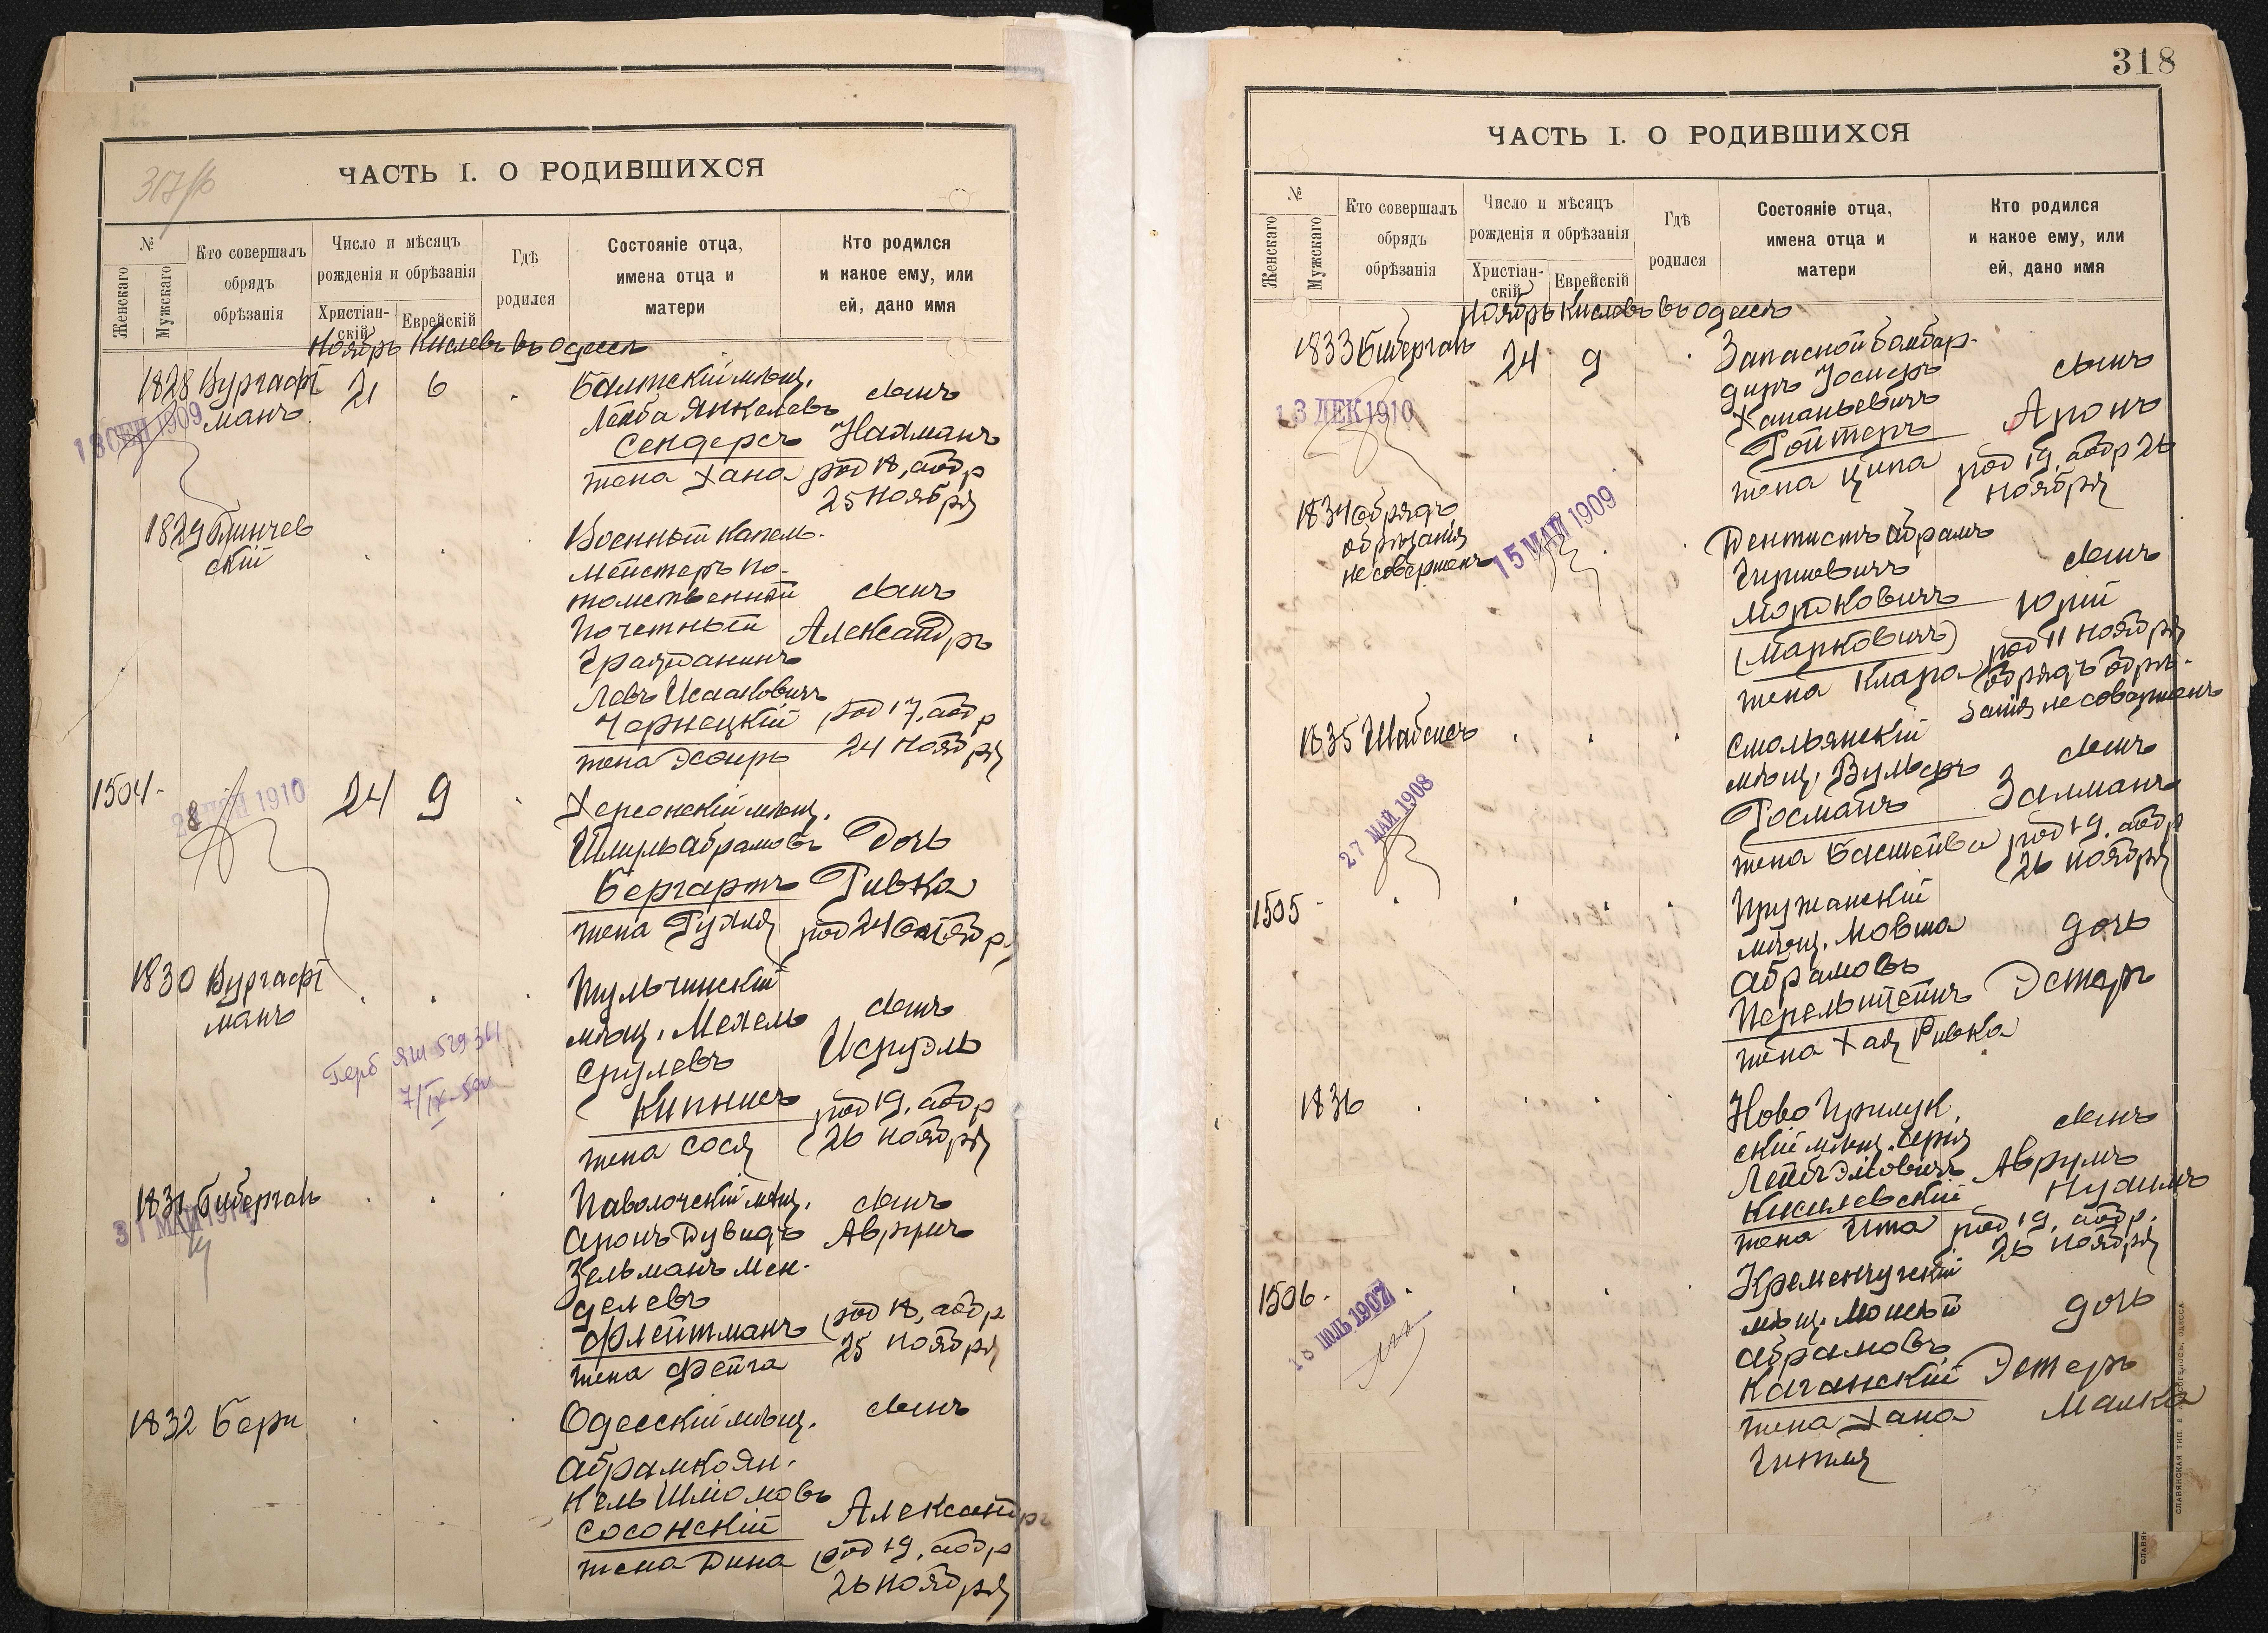 317/об
ЧАСТЬ I. О РОДИВШИХСЯ
№
Женскаго
Мужскаго
Кто совершалъ
обрядъ
обрѣзанія
Число и мѣсяцъ
рожденія и обрѣзанія
Христіан-
скій
Еврейскій
Гдѣ
родился
Состояніе отца,
имена отца и
матери
Кто родился
и какое ему, или
ей, дано имя
Ноябрь Кислевъ въ Одессѣ
1828 Вургафт
манъ
21 6
18 СЕН 1909
Балтскій мѣщ.
Лейба Янкелевъ
Сендеръ
жена Хана
сынъ
Нахманъ
род 18, обр
25 ноября
1829 Блинчев
скій
Военный капель-
мейстеръ по-
томственный
Почетный
Гражданинъ
Левъ Исааковичъ
Чернецкій
жена Эсфирь
сынъ
Александръ
род 17, обр
24 ноября
1504
1910
24 9
Херсонскій мѣщ.
Шмуль Абрамовъ
Бергартъ
жена Рухля
Дочь
Ривка
род 24 Октябр
1830 Вургафт
манъ
Герб
Тульчинскій
мѣщ. Мехель
Срулевъ
Кипнисъ
жена Сося
сынъ
Исруэль
род 19, обр
26 ноября
1831 Биберганъ
31 МАЙ 191
Паволочскій мѣщ.
Аронъ Дувидъ
Зельманъ Мен-
делевъ
Флейтманъ
жена Фейга
сынъ
Аврумъ
род 18, обр
25 ноября
1832 Бери
Одесскій мѣщ.
Абрамко Ян-
кель Шліомовъ
Сосонскій
жена Дина
сынъ
Александръ
род 19, обр
26 ноября
318
ЧАСТЬ I. О РОДИВШИХСЯ
№
Женскаго
Мужскаго
Кто совершалъ
обрядъ
обрѣзанія
Число и мѣсяцъ
рожденія и обрѣзанія
Христіан-
скій
Еврейскій
Гдѣ
родился
Состояніе отца,
имена отца и
матери
Кто родился
и какое ему, или
ей, дано имя
Ноябрь Кислевъ въ Одессѣ
1833 Биберганъ
24 9
13 ДЕК 1910
Запасной бомбар-
диръ Іосифъ
Хананьевичъ
Ройтеръ
жена Ципа
сынъ
Аронъ
род 19, обр 26
ноября
1834 Обрядъ
обрѣзанія
не совершенъ
15 МАЙ 1909
Дентистъ Абрамъ
Гиршовичъ
Мордковичъ
(Марковичъ)
жена Клара
сынъ
Юрій
род 11 ноября
обрядъ обрѣ-
занія не совершенъ
1835 Шабсисъ
27 МАЙ 1908
Смольянскій
мѣщ. Вульфъ
Росманъ
жена Басшейва
сынъ
Залманъ
род 19, обр
26 ноября
1505
Пружанскій
мѣщ. Мовша
Абрамовъ
Перельштейнъ
жена Хая Ривка
дочь
Эстеръ
1836
Ново Прилук
скій мѣщ. Берія
Лейбъ Эліовичъ
Кисилевскій
жена Ита
сынъ
Аврумъ
Нухимъ
род 19, обр.
26 ноября
1506
18 ІЮЛЬ 1907
Кременчугскій
мѣщ. Моисей
Абрамовъ
Каганскій
жена Хана
Гитля
дочь
Эстеръ
Малка